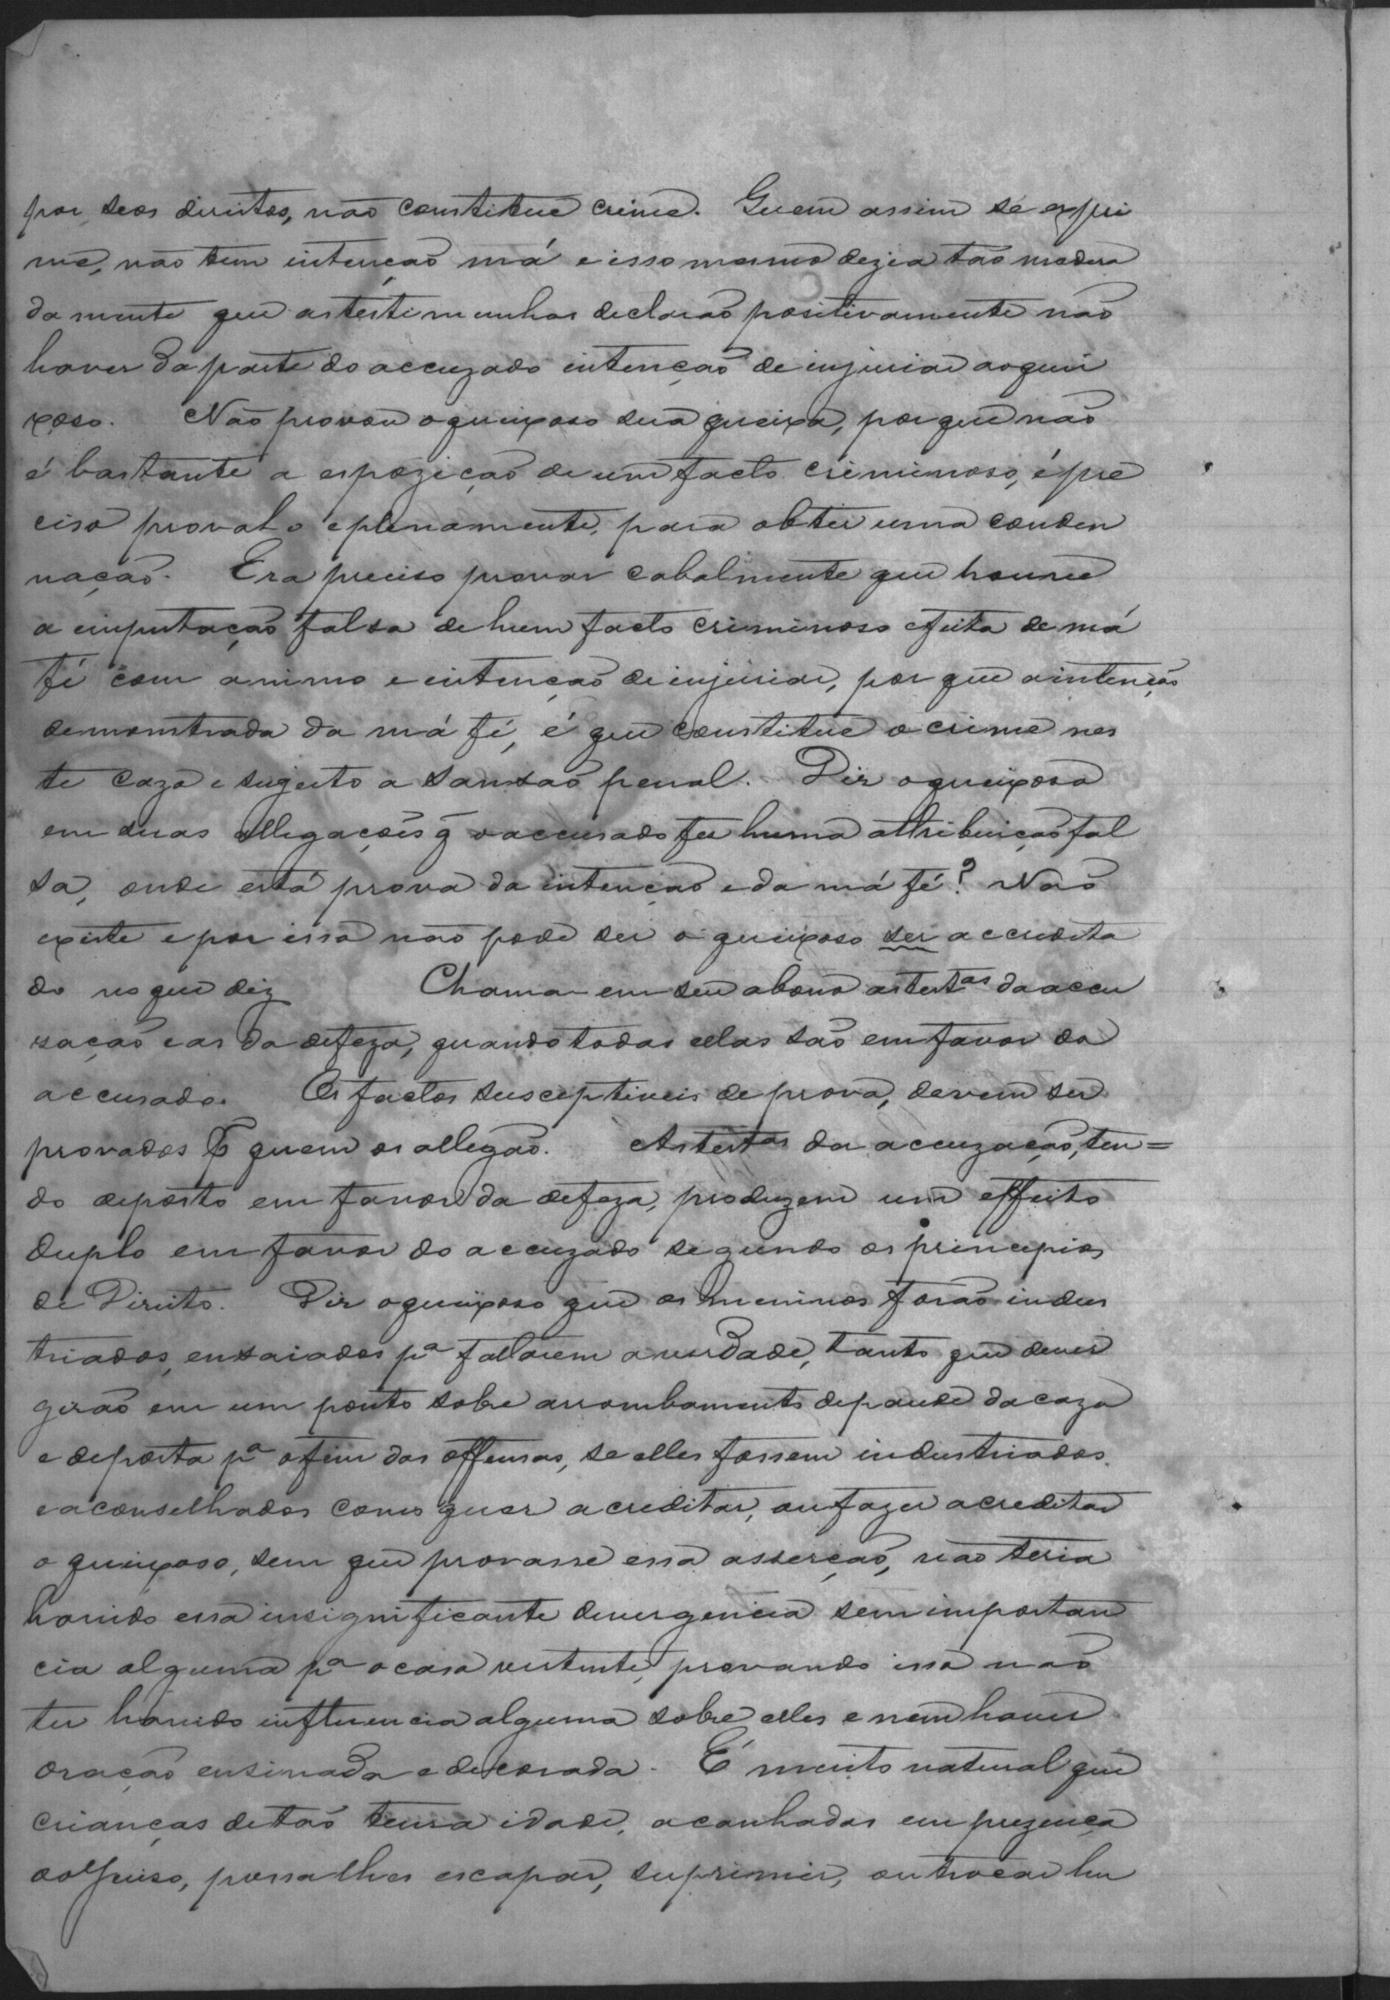 por seos direitos, não constitue crime. Quem assim se expri
me, não tem intenção má e isso mesmo dezia tão modera
damente que as testimunhas declarão positivamente não
haver da parte do accuzado intenção de injuriar ao quei
xoso. Não provou o queixoso sua queixa, por que não
é bastante a espozição de um facto criminoso, é pre
ciso proval o e plenamente, para obter uma conden
nação. Era preciso provar cabalmente que houve
a imputação falsa de hum facto criminoso e feita de má
fé com animo e intenção de injuriar, por que a intenção
demonstrada da má fé, é que constitue o crime nes
te cazo e sugeito a sansão penal. Diz o queixoso
em suas allegações q̃ o accusado fez huma attribuição fal
sa, onde está prova da intenção e da má fé? Não
existe e por isso não pode ser o queixoso ser accredita
do no que diz Chama em seu abono as testas da accu
sação e as da defeza, quando todas ellas são em favor do
accusado. Os factos susceptiveis de prova, devem ser
provados p quem os allegão. As testas da accuzação, ten=
do deposto em favor da defeza, produzem um effeito
duplo em favor do accuzado segundo os principios
de Direito. Diz o queixoso que os meninos forão indus
triados, ensaiados pa fallarem a verdade, tanto que diver
girão em um ponto sobre arrombamento de parede da caza
e de porta pa o fim das offensas, se elles fossem industriados
e aconselhados como quer acreditar, ou fazer acreditar
o queixoso, sem que provasse essa asserção, não teria
havido essa insignificante divergencia sem importan
cia alguma pa o caso vertente, provando isso não
ter havido influencia alguma sobre elles e nem haver
oração ensinada e decorada. É muito natural que
crianças de tão tenra idade, acanhadas em prezença
do Juiso, possa lhes escapar, suprimir, ou trocar hu